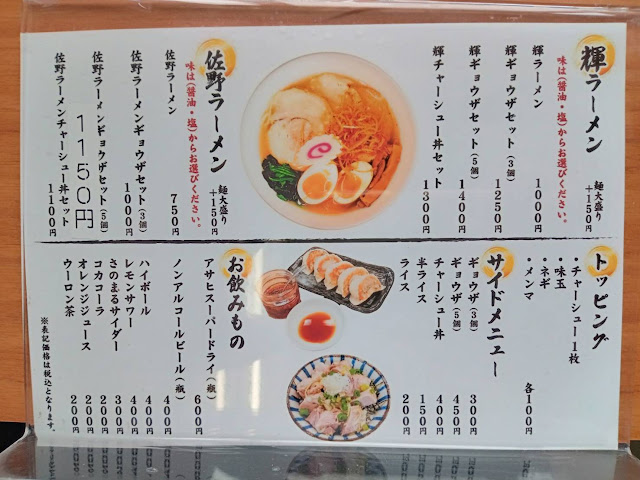 輝ラーメン
麺大盛り
+150円
味は(醤油・塩)からお選びください。
輝ラーメン 1000円
輝ギョウザセット(3個) 1250円
輝ギョウザセット(5個) 1400円
輝チャーシュー丼セット 1300円
佐野ラーメン
麺大盛り
+150円
味は(醤油・塩)からお選びください。
佐野ラーメン 750円
佐野ラーメンギョウザセット(3個) 1000円
佐野ラーメンギョウザセット(5個) 1150円
佐野ラーメンチャーシュー丼セット 1100円
トッピング
・チャーシュー1枚
・味玉
・ネギ
・メンマ
各100円
サイドメニュー
ギョウザ(3個) 300円
ギョウザ(5個) 450円
チャーシュー丼 400円
半ライス 150円
ライス 200円
お飲みもの
アサヒスーパードライ(瓶) 600円
ノンアルコールビール(瓶) 400円
ハイボール 400円
レモンサワー 400円
さのまるサイダー 300円
コカコーラ 200円
オレンジジュース 200円
ウーロン茶 200円
※表記価格は税込となります。